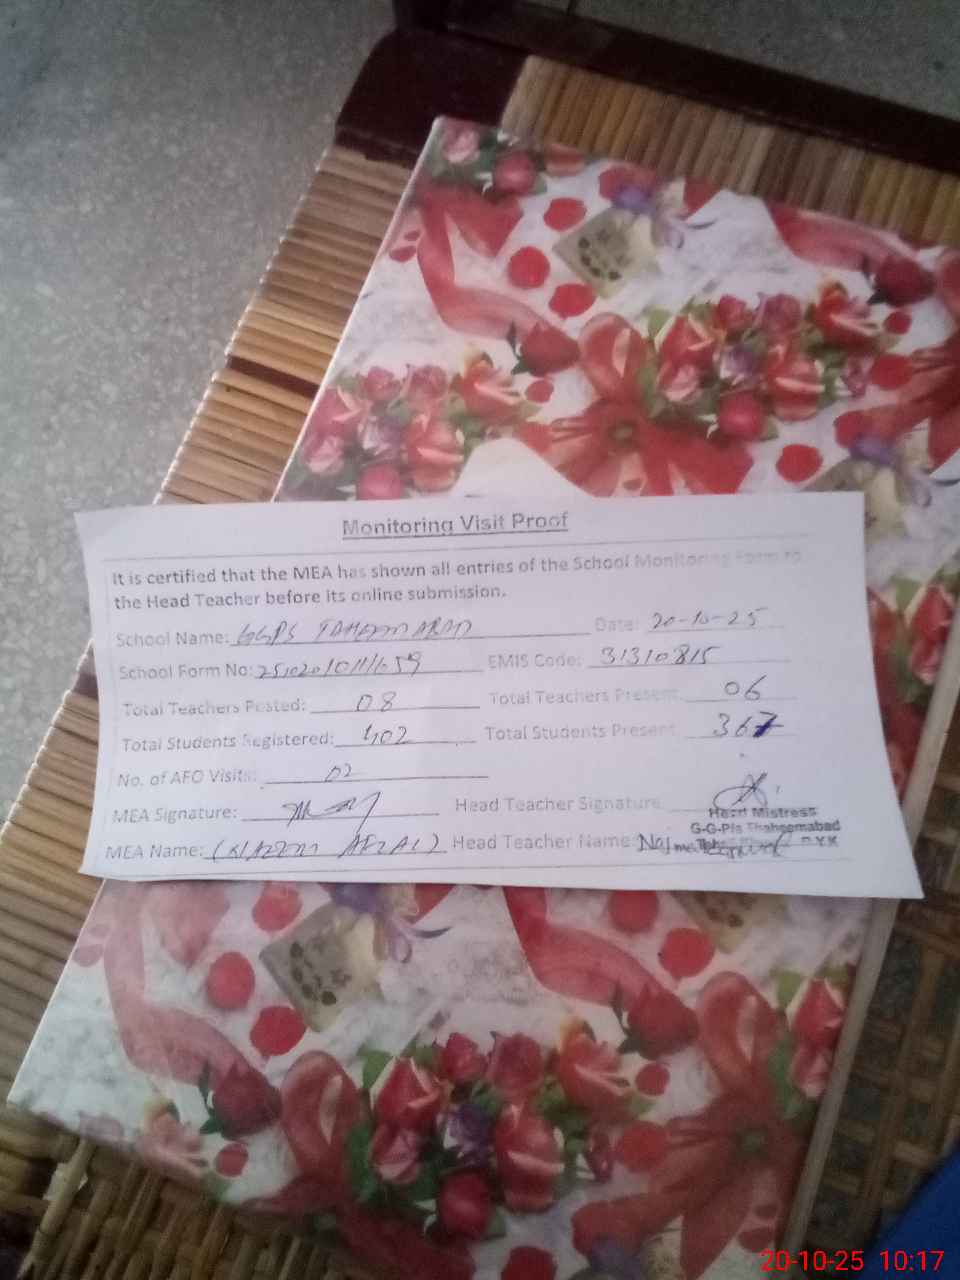 Monitoring Visit Proof
It is certified that the MEA has shown all entries of the School Monitoring Form to
the Head Teacher before its online submission.
School Name: GGPS Date: 20-10-25
School Form No: EMIS Code: 31310815
Total Teachers Posted: 08 Total Teachers Present: 06
Total Students Registered: 402 Total Students Present: 367
No. of AFO Visits: 02
MEA Signature: Head Teacher Signature
Head Mistress
G-G-P/s Thaheemabad
MEA Name: ( AFZAL) Head Teacher Name: Najma R.Y.K
20-10-25 10:17